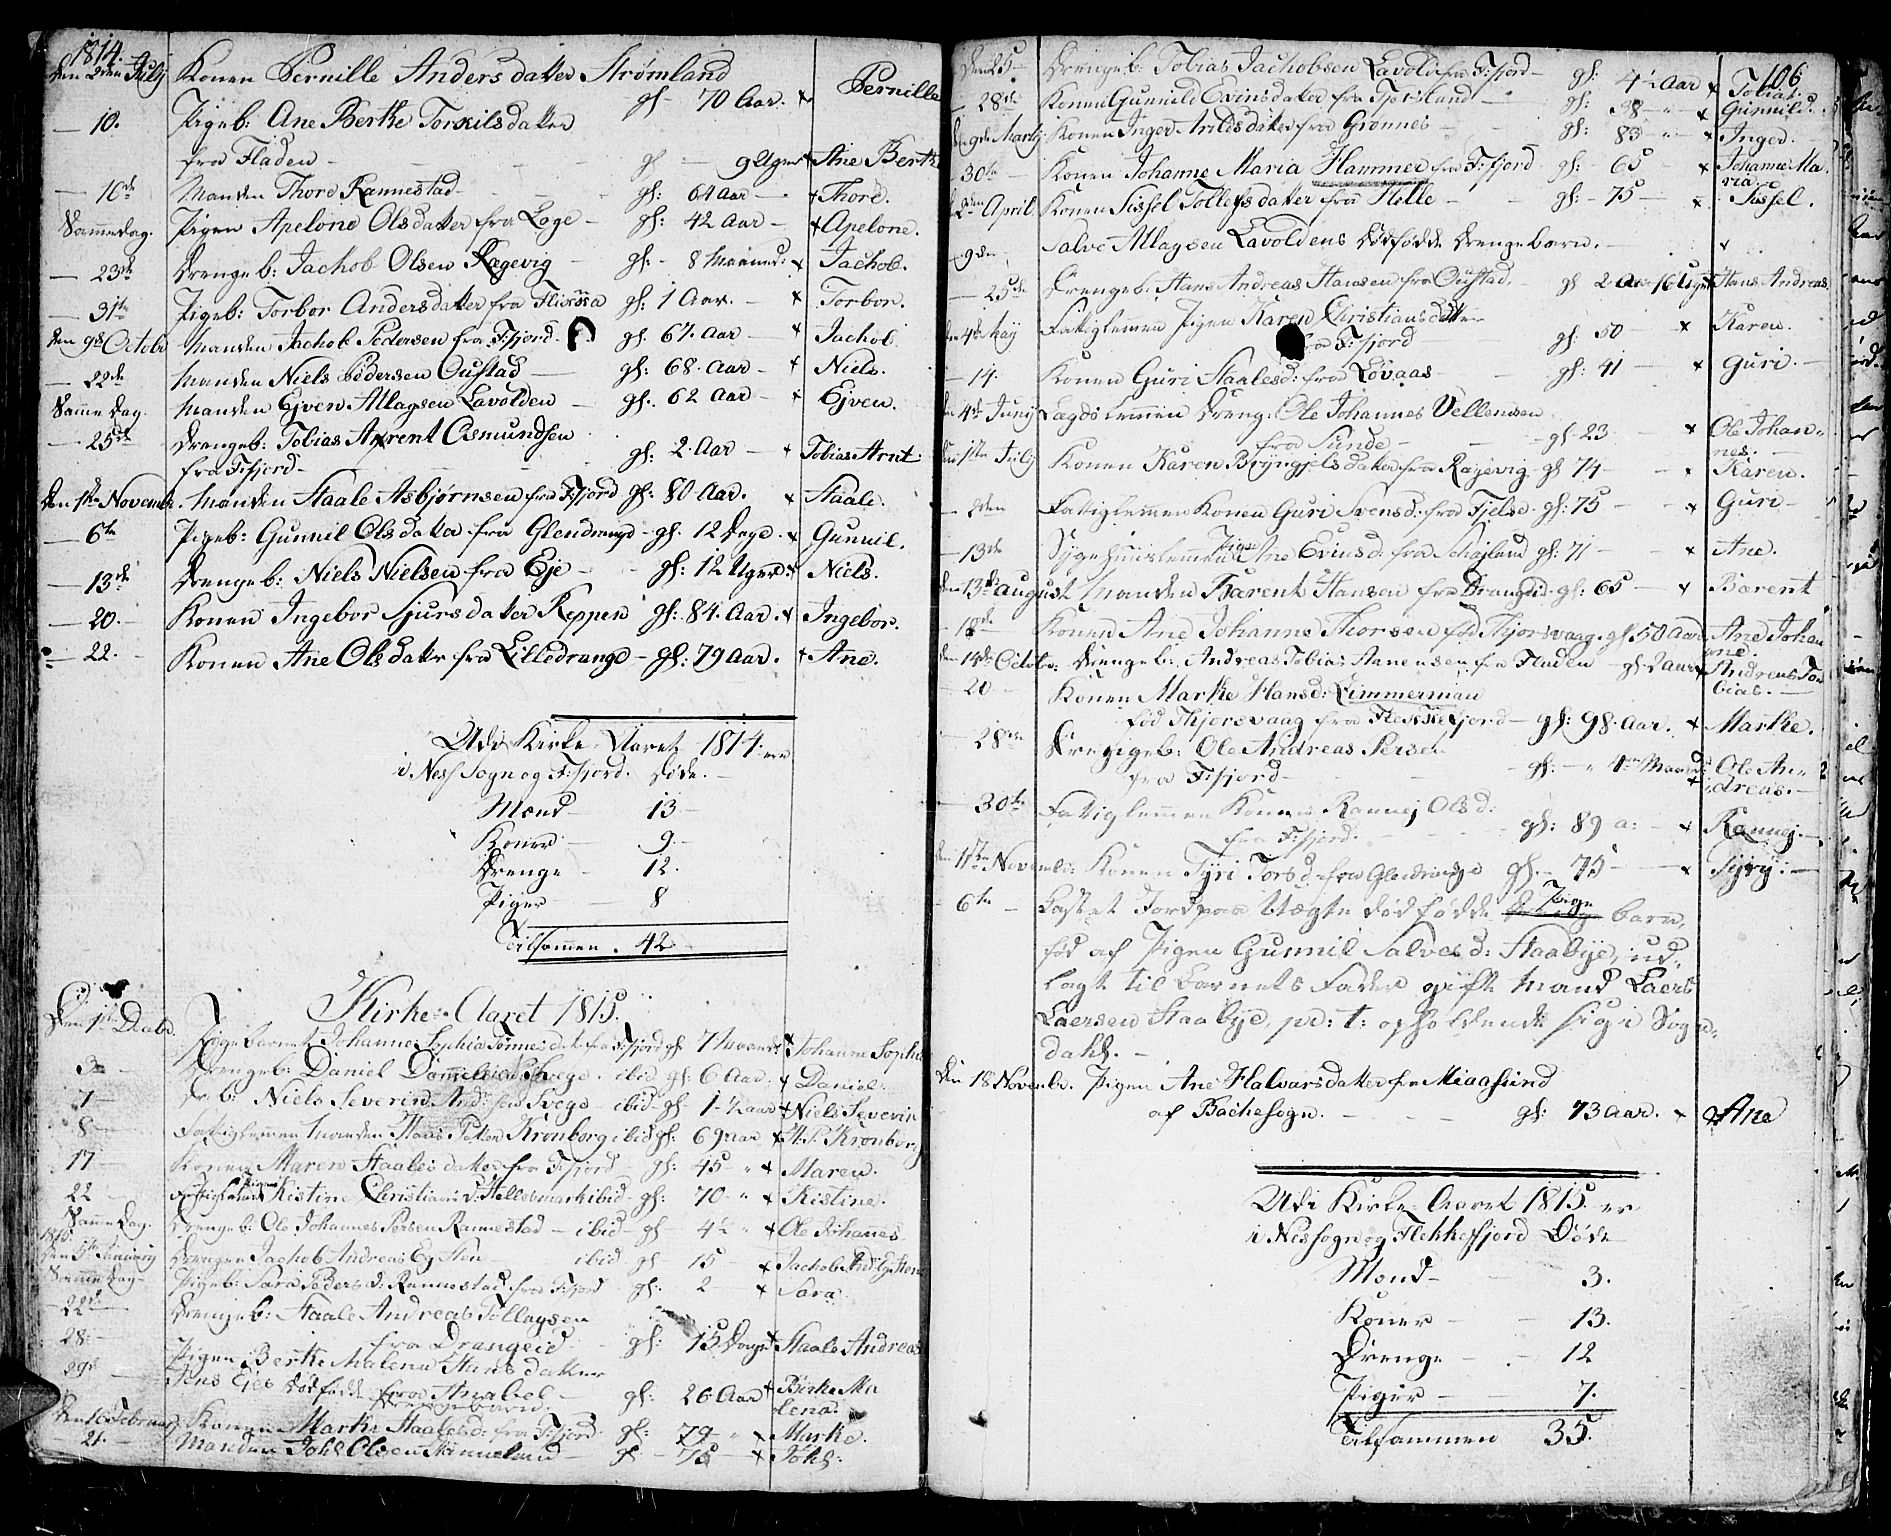 1814.
den 2den Julij Konen Pernille Andersdatter Strømland
gl- 70 Aar. × Pernille
— 10. Pigeb: Ane Berthe Torkilsdatter
fra Fladen - gl — 9 Uger × Ane Berthe
— 16de Manden Thore Rannestad - gl: 64 Aar - × Thore.
Samme dag. Pigen Apelone Olsdatter fra Loge - gl: 42 Aar - × Apelone.
— 23de Drengeb: Jachob Olsen Rægevig - gl: - 8 Maaned: × Jachob.
— 31te Pigeb: Torbor Andersdatter fra Fliessa gl: 1 Aar. - × Torbor.
den 9de Octobr Manden Jachob Pedersen fra F:fjord. gl: 67. Aar - × Jachob.
— 22de Manden Niels Pedersen Oustad - gl: 68. Aar - × Niels.
Samme Dag. Manden Ejven Allagsen Lavolden - gl: 62 Aar - × Ejven.
— 25de Drengeb: Tobias Arent Osmundsen
fra F:fjord - gl: 2. Aar - × Tobias Arnt
Den 1te Novembr. Manden Staale Asbjørnsen fra F:fjord gl: 80 Aar. × Staale.
— 6te Pigeb: Gunnil Olsdatter fra Glendrange - gl. 12 Dage. × Gunnil.
— 13de Drengeb: Niels Nielsen fra Eje - gl: 12 Uger × Niels.
— 20. - Konen Ingebor Sjursdatter Reppen gl: 84. Aar. × Ingebor.
— 22. - Konen Ane Olsdatter fra Lilledrange - gl: 79 Aar. × Ane.
Udi Kirke-Aaret 1814. ere
i Ness Sogn og F:fjord. døde. -
Mænd - 13 -
Koner - 9. -
Drenge - 12.
Piger - 8
Tilsammen . 42 -
Kirke-Aaret 1815.
Den 1te Decbr. Pigebarnet Johanne Sophia Tønnesdatter fra F:fjord gl. 7 Maaned × Johanne Sophi
3 - Drengeb: Daniel Danielsen Svege. ibid gl: 6 Aar. × Daniel.
7 - Dr. b: Niels Severin And:sen Svege - ibid - gl - 1 ½ aar × Niels Severin
8 - Fattiglemmen Manden Hans Petter Kronborg ibid gl: 69 aar × H. P. Kronborg
17 - Konen Maren Staalesdatter fra F:fjord - gl: 45 - " × Maren.
22 - Fattiglemmet Pigen Kistine Christians d: Hellesmark ibid - gl: 70 - " × Kistine.
Samme Dag. Drengeb: Ole Johannes Persen Rannestad - ibid - gl - 4 ½ " × Ole Johannes
1815
Den 5te Januarij Drengen Jachob Andreas Eg Sten - ibid gl - 15 - × Jachob And. Eg Sten
Samme Dag - Pigeb: Sara Peders d: Rannestad fra F:fjord gl: 2 - × Sara.
— 22de Drengeb: Staale Andreas Tollagsen
28. - fra Drangeid - gl: 15 Dage × Staale Andreas
Pigen Berthe Malena Hansdatter
29de - fra Anabel - gl: 26 Aar × Birthe Ma
lena.
Jens Ejes dødfødde Drengebarn.
Den 16 Februarij Konen Marthe Staalesd: fra F:fjord. gl: 79 - " × Marthe.
21. - Manden Johs Olsen Stimmeland - gl - 75 - × Johs:
106
Den 25 - Drengeb: Tobias Jachobsen Lavold fra F:fjord - gl: 4 ½ Aar × Tobias.
— 28de Konen Gunnild Evinsdatter fra Tjorsland - gl: 58 " - × Gunnild.
Den 9de Martij Konen Inger Arildsdatter fra Grønnes - gl: 83 " - × Inger.
30te - Konen Johanne Maria Hammer fra F:fjord gl: 65 - × Johanne Ma.
ria
2den April. Konen Sissel Tollefsdatter fra Hille - gl: - 75 - × Sissel.
— 9de Salve Allagsen Lavoldens dødfødde Drengebarn. - ×
— 25de Drengeb: Hans Andreas Hansen fra Oustad. gl 2 Aar 16 Uger Hans Andreas
Den 4de Maij Fattiglemmen Pigen Karen Christiansdatter
fra F:fjord - gl: 50 - × Karen.
— 14. Konen Guri Staalesd: fra Lovaas - gl: 41 - × Guri. -
Den 4de Junij Lagdslemmen Dreng: Ole Johannes Vellemsen
fra Sunde - gl: 23 - × Ole Johan=
nes.
Den 1ste Julij Konen Karen Bryngjelsdatter fra Rægevig - gl 74 - × Karen.
— 9den Fattiglemmen Konen Guri Svensd: fra Fjelse. gl: 75 - × Guri -
— 13de Sygehuuslemmen Pige Ane Evinsd: fra Schøjlund gl: 71 - × Ane.
Den 13de August Manden Barent Hansen fra Drangeid. gl: 65 - × Barent
— 18de - Konen Ane Johanne Thorsen fød Thjorsvaag. gl 50 Aar Ane Johan
ane.
Den 14de Octobr: Drengeb: Andreas Tobias Aanensen fra Fladen - gl: 2 aar × Andreas To
bias. -
— 20 - Konen Marthe Hansd: Zimmerman
fød Thjorsvaag fra Flekkefjord - gl: 98. Aar. × Marthe.
— 28de Drengeb: Ole Andreas Persen
fra F:fjord - gl: - " 4re Maaned × Ole An=
dreas. -
— 30te Fattiglemmen Konen Rannej Olsd:
fra F:fjord. - gl: 89 a: - × Rannej. -
Den 1ste Novembr: Konen Tyri Torsd fra Glendrange gl. - 75 - × Tyri: -
— 6te - Castet Jord paa Uægte dødfødde Pige barn,
fød af Pigen Gunnil Salves d: Staabye, ud,
lagt til Barnets Fader gift Mand Laers
Laersen Staabye, pr: t: opholdende sig i Sogn=
dahl. -
Den 18 Novembr. Pigen Ane Halvarsdatter fra Miaasund
af Bache Sogn. - gl: 73 Aar. × Ane
Udi Kirke-Aaret 1815. er
i Nes Sogn og Flekkefjord Døde
Mænd - 3.
Koner - 13.
Drenge - 12
Piger - 7.
Tilsammen 35.